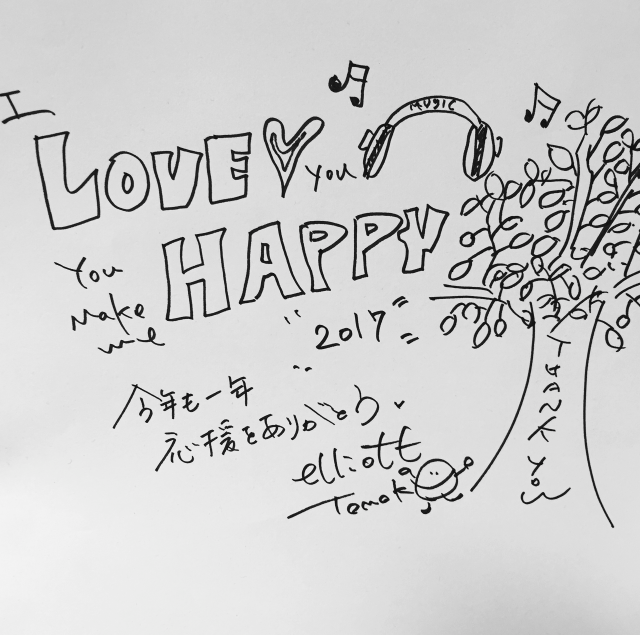 I
LOVE you
MUSIC
You
Make
me
HAPPY
"2017"
今年も一年
応援をありがとう
elliott
Tomoko
THANK YOU